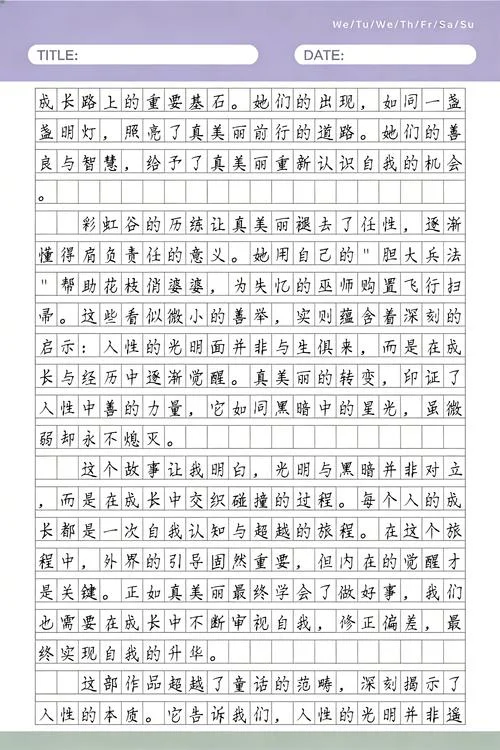 We/Tu/We/Th/Fr/Sa/Su
TITLE:
DATE:
成长路上的重要基石。她们的出现，如同一盏
盏明灯，照亮了真美丽前行的道路。她们的善
良与智慧，给予了真美丽重新认识自我的机会
。
彩虹谷的历练让真美丽褪去了任性，逐渐
懂得肩负责任的意义。她用自己的"胆大兵法
"帮助花枝俏婆婆，为失忆的巫师购置飞行扫
帚。这些看似微小的善举，实则蕴含着深刻的
启示：人性的光明面并非与生俱来，而是在成
长与经历中逐渐觉醒。真美丽的转变，印证了
人性中善的力量，它如同黑暗中的星光，虽微
弱却永不熄灭。
这个故事让我明白，光明与黑暗并非对立
，而是在成长中交织碰撞的过程。每个人的成
长都是一次自我认知与超越的旅程。在这个旅
程中，外界的引导固然重要，但内在的觉醒才
是关键。正如真美丽最终学会了做好事，我们
也需要在成长中不断审视自我，修正偏差，最
终实现自我的升华。
这部作品超越了童话的范畴，深刻揭示了
人性的本质。它告诉我们，人性的光明并非遥